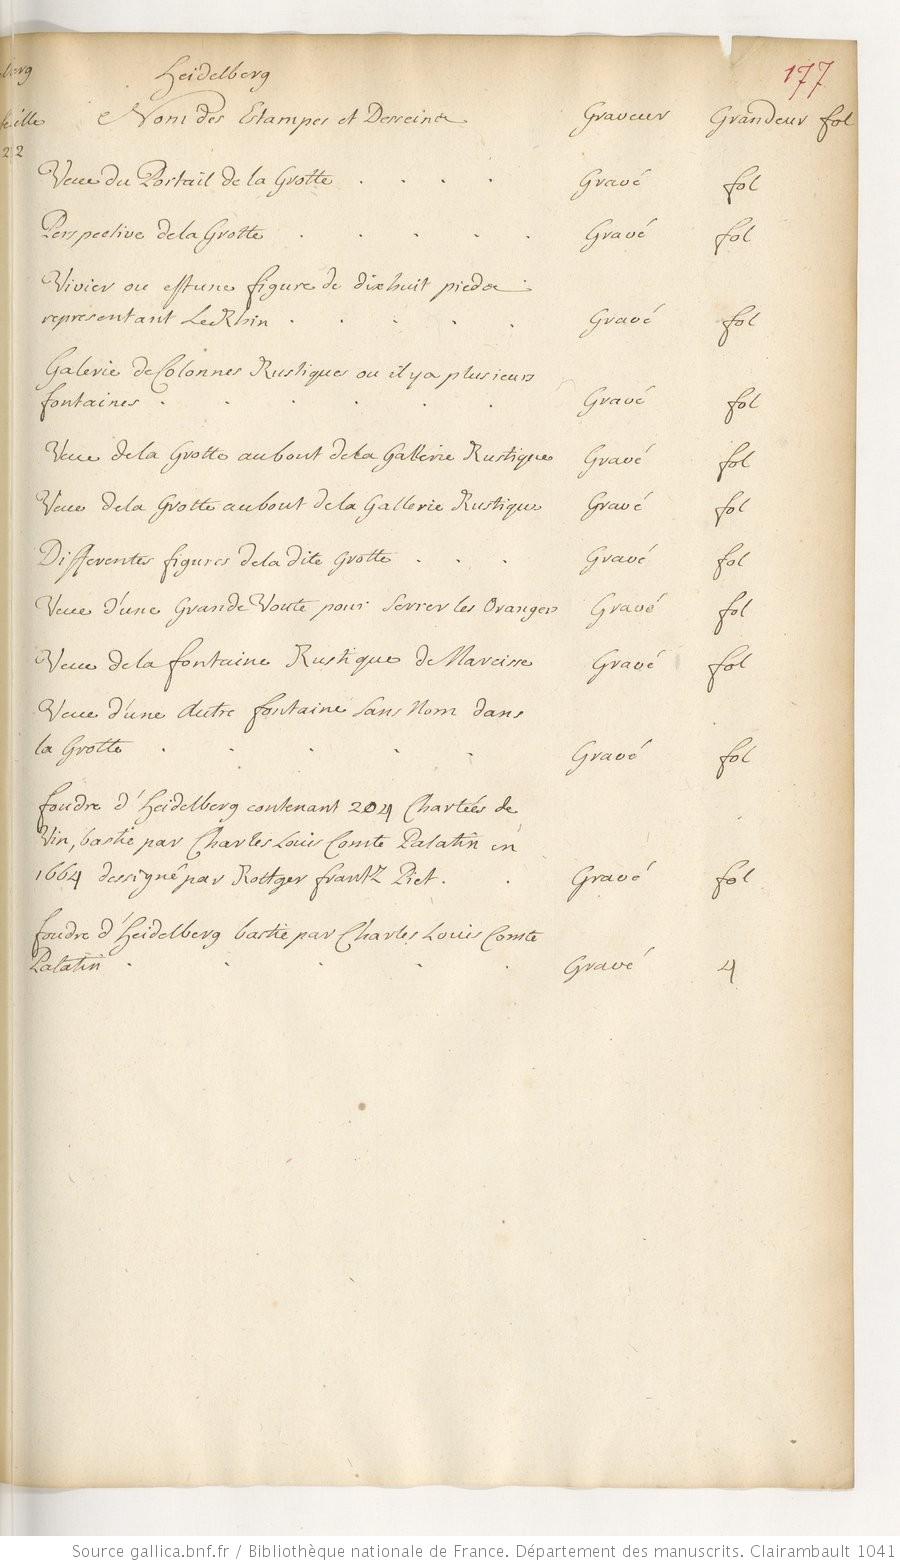 Heidelberg
177
Nom des Estampes et Desseins Graveur Grandeur fol
22
Veue du Portail de la Grotte . . . . Gravé fol
Perspective de la Grotte . . . . . Gravé fol
Vivier ou est une figure de dixhuit pieds
representant Le Rhin . . . . . Gravé fol
Galerie de Colonnes Rustiques ou il y a plusieurs
fontaines . . . . . . Gravé fol
Veue de la Grotte au bout de la Gallerie Rustique Gravé fol
Veue de la Grotte au bout de la Gallerie Rustique Gravé fol
Differentes figures de la dite Grotte . . . Gravé fol
Veue d'une Grande Voute pour Serrer les Orangers Gravé fol
Veue de la fontaine Rustique de Narcisse Gravé fol
Veue d'une Autre fontaine Sans Nom dans
la Grotte . . . . . Gravé fol
foudre d'Heidelberg contenant 204 Chartées de
Vin, bastie par Charles Louis Comte Palatin en
1664 dessigné par Rottger frantz Piet . . Gravé fol
foudre d'Heidelberg bastie par Charles Louis Comte
Palatin . . . . . Gravé 4
Source gallica.bnf.fr / Bibliothèque nationale de France. Département des manuscrits. Clairambault 1041